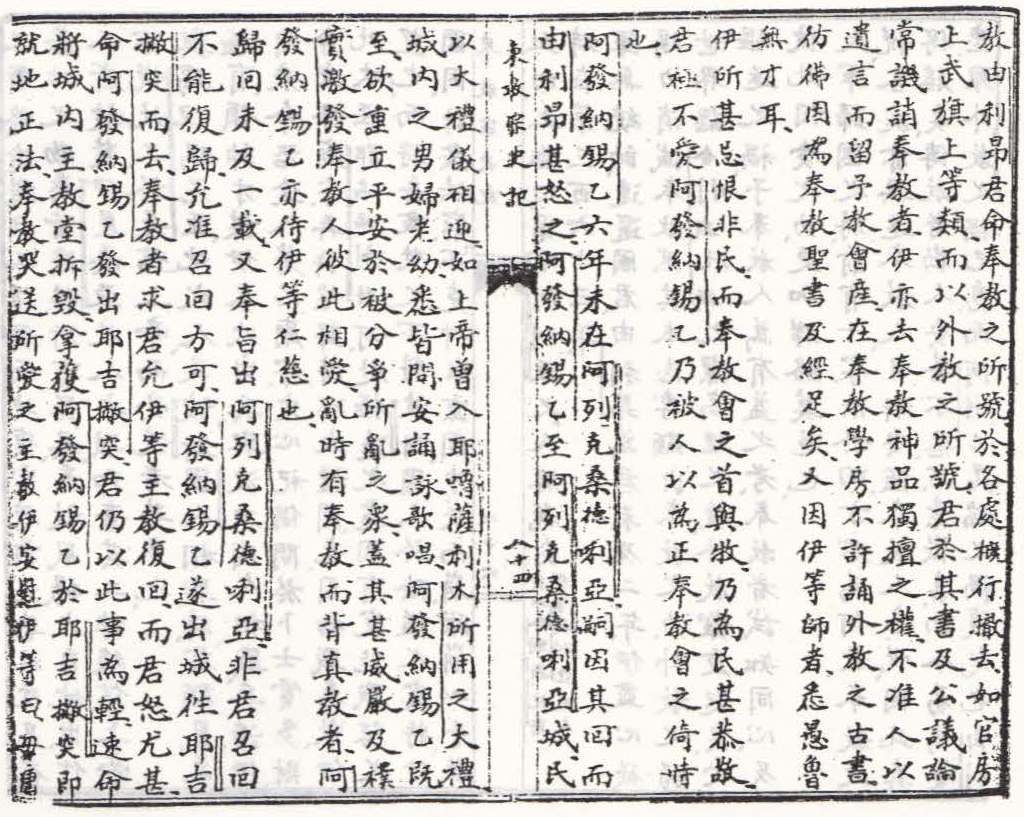 教由利昂君命奉教之所號於各處概行撤去如官房
上武旗上等類而以外教之所號君於其書及公議論
常譏誚奉教者伊亦去奉教神品獨擅之權不准人以
遺言而留予教會産在奉教學房不許誦外教之古書
彷彿因為奉教聖書及經足矣又因伊等師者悉愚魯
無才耳
伊所甚忌恨非民而奉教會之首與牧乃為民甚恭敬
君極不愛阿發納錫乙乃被人以為正奉教會之倚恃
也
阿發納錫乙六年未在阿列克桑德唎亞嗣因其回而
由利昻甚怒之阿發納錫乙至阿列克桑德唎亞城民
東教宗史記
八十四
以大禮儀相迎如上帝曾入耶嚕薩利木所用之大禮
城内之男婦老幼悉皆問安誦詠歌唱阿發納錫乙既
至欲重立平安於被分爭所亂之衆蓋其甚威嚴及樸
實激發奉教人彼此相愛亂時有奉教而背真教者阿
發納錫乙亦待伊等仁慈也
歸回未及一載又奉旨出阿列克桑德唎亞非君召回
不能復歸允准召回方可阿發納錫乙遂出城徃耶吉
撇突而去奉教者求君允伊等主教復回而君怒尤甚
命阿發納錫乙發出耶吉撇突君仍以此事為輕速命
將城内主教堂拆毀拿獲阿發納錫乙於耶吉撇突即
就地正法奉教哭送所愛之主教伊安慰伊等曰毋